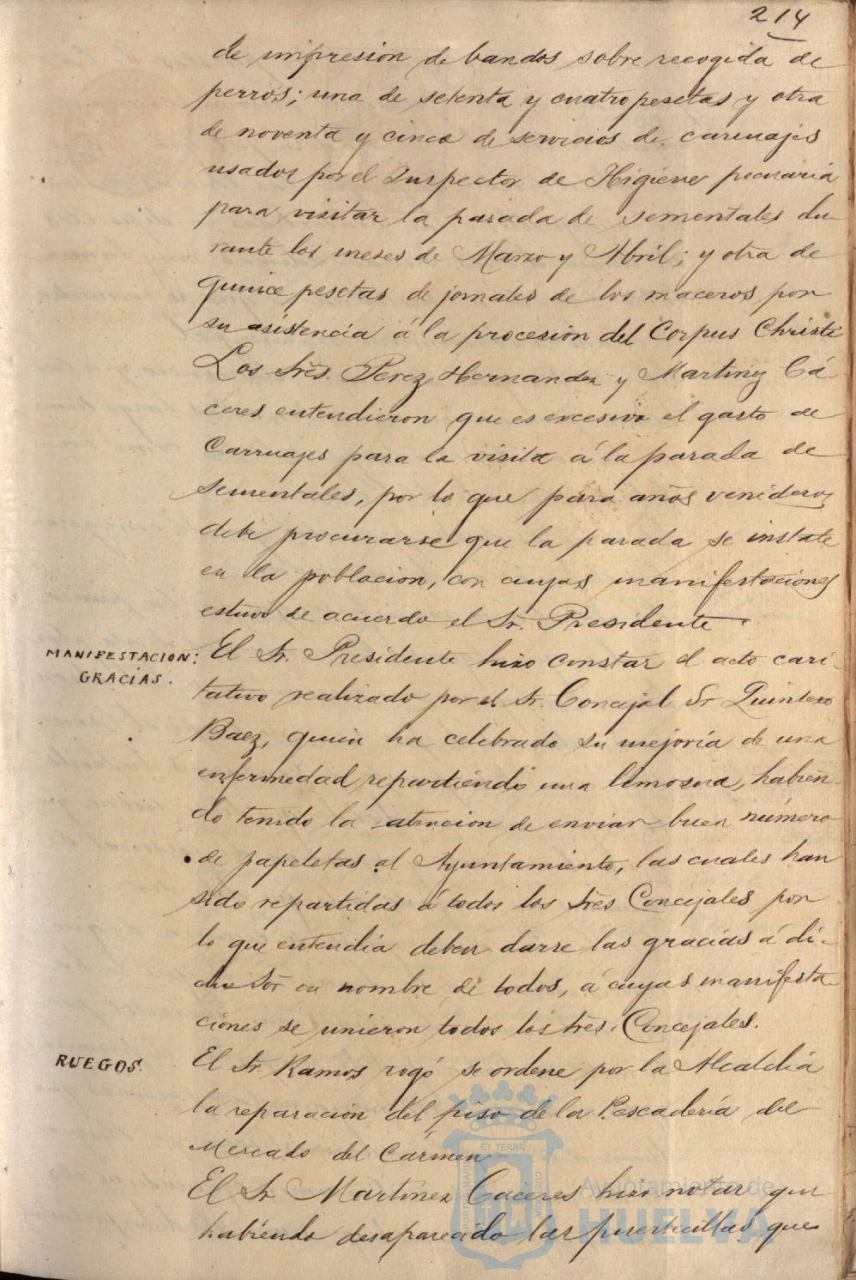 214
de impresion de bandos sobre recogida de
perros; una de setenta y cuatro pesetas y otra
de noventa y cinco de servicios de carruajes
usados por el Inspector de Higiene pecuaria
para visitar la parada de sementales du-
rante los meses de Marzo y Abril; y otra de
quince pesetas de jornales de los maceros por
su asistencia á la procesion del Corpus Christi
Los Srēs. Perez Hernandez y Martinez Cá-
ceres entendieron que es excesivo el gasto de
Carruajes para la visita á la parada de
Sementales, por lo que para años venideros
debe procurarse que la parada se instale
en la poblacion, con cuyas manifestaciones
estuvo de acuerdo el Sr. Presidente.
MANIFESTACION:
GRACIAS.
El Sr. Presidente hizo constar el acto cari-
tativo realizado por el Sr. Concejal Sr Quintero
Baez, quien ha celebrado su mejoría de una
enfermedad repartiendo una limosna, habien-
do tenido la atencion de enviar buen número
de papeletas al Ayuntamiento, las cuales han
sido repartidas á todos los Srēs Concejales por
lo que entendia deben darse las gracias á di-
cho Sōr en nombre de todos, á cuyas manifesta-
ciones se unieron todos los Srēs. Concejales.
RUEGOS.
El Sr. Ramos rogó se ordene por la Alcaldía
la reparación del piso de la Pescadería del
Mercado del Cármen
El Sr Martinez Caceres hizo notar que
habiendo desaparecido las puertecillas que
Ayuntamiento de
HUELVA